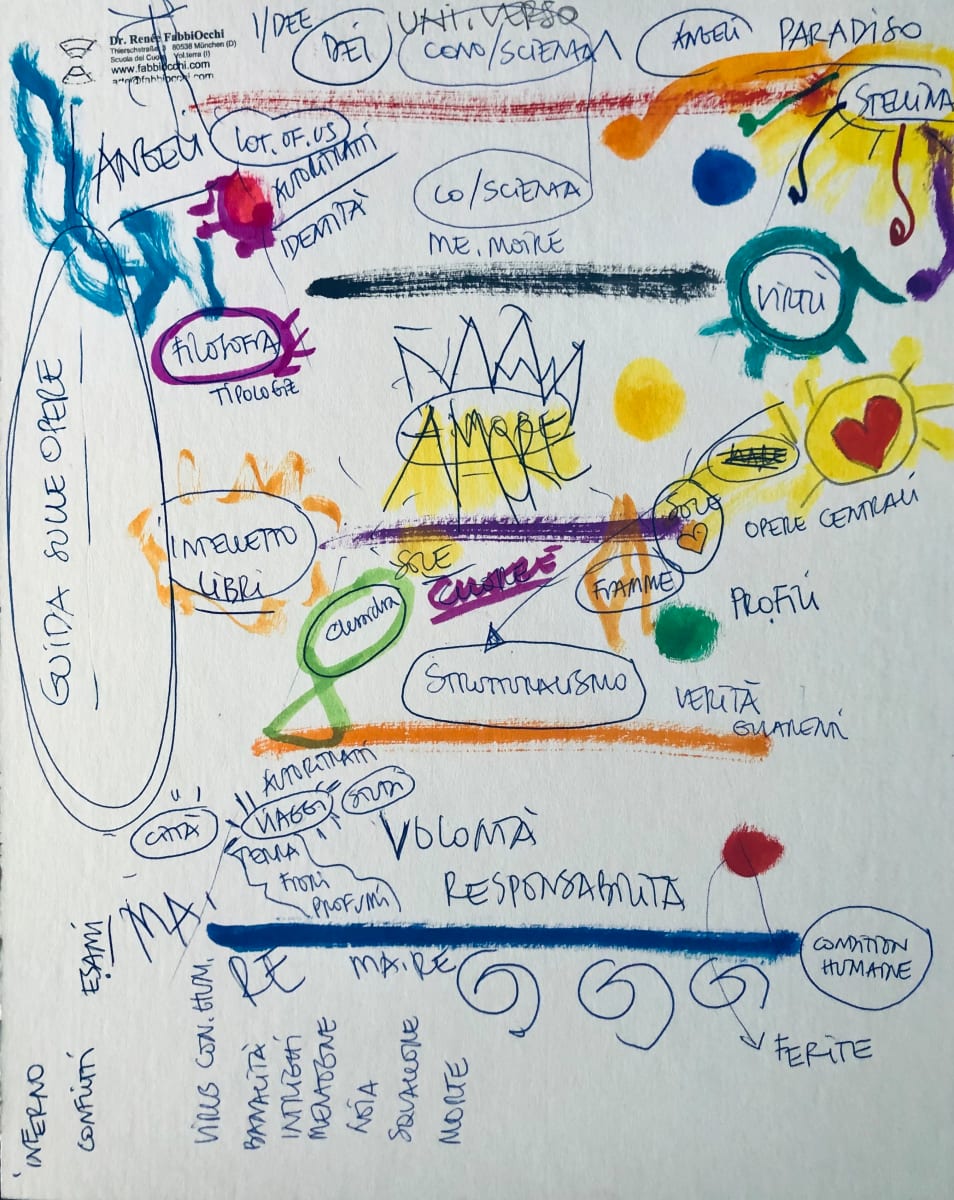 Dr. Renée FabbiOcchi
80538 München (D)
Scuola del Cuore Volterra (I)
www.fabbiocchi.com
I/DEE
DEI
UNI.VERSO
CONO/SCIENZA
ANGELI
PARADISO
STELLINA
ANGELI
LOT.OF.US
AUTORITRATTI
IDENTITÀ
CO/SCIENZA
ME.MOIRE
VIRTÙ
FILOSOFIA
TIPOLOGIE
AMORE
GUIDA SULLE OPERE
INTELLETTO
LIBRI
SOLE
CUORE
SOLE
FIAMME
OPERE CENTRALI
PROFILI
STRUTTURALISMO
VERITÀ
AUTORITRATTI
VIAGGI
STUDI
CITTÀ
FIORI
PROFUMI
VOLONTÀ
RESPONSABILITÀ
MA
RE
MA.RE
CONDITION
HUMAINE
FERITE
INFERNO
CONFLITTI
ESAMI
VIRUS CON.HUM.
BANALITÀ
INTRIGHI
MENZOGNE
NOIA
SQUALLORE
MORTE